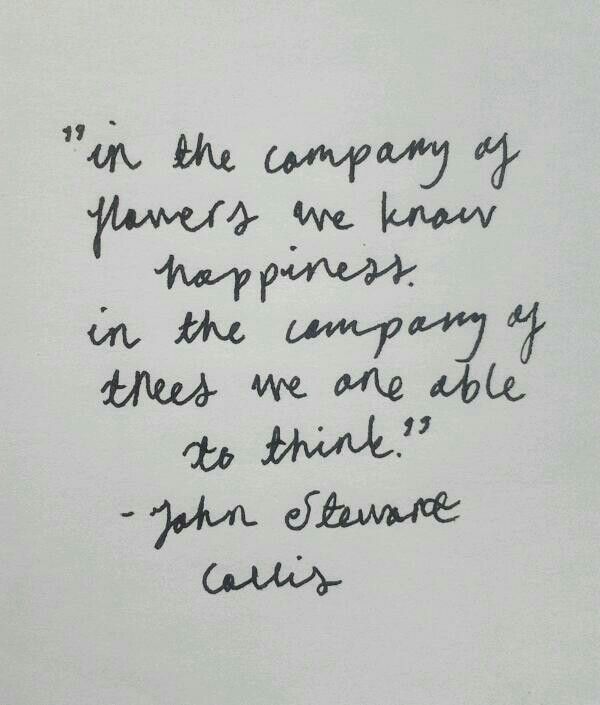 "in the company of
flowers we know
happiness.
in the company of
trees we are able
to think."
- John Stewart
Collis